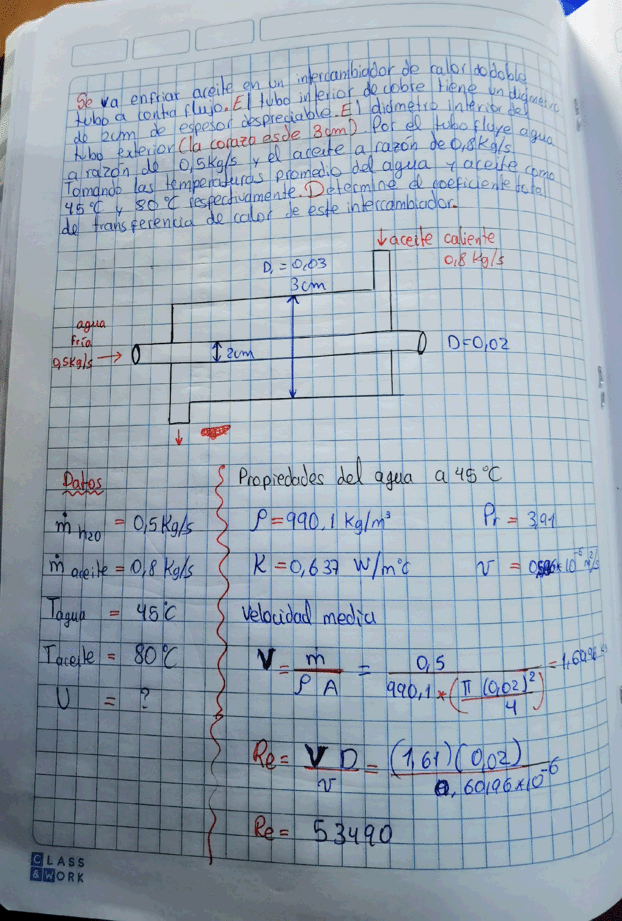 Se va enfriar aceite en un intercambiador de calor de doble
tubo a contra flujo. El tubo interior de cobre tiene un diámetro
de 2cm de espesor despreciable. El diámetro interior del
tubo exterior (la coraza es de 3cm) Por el tubo fluye agua
a razón de 0,5kg/s y el aceite a razón de 0,8kg/s.
Tomando las temperaturas promedio del agua y aceite como
45°C y 80°C respectivamente. Determine el coeficiente total
de transferencia de calor de este intercambiador.
↓aceite caliente
0,8 kg/s
D₁ = 0,03
3cm
agua
fría
0,5kg/s →
2cm
D=0,02
Datos
ṁ H20 = 0,5 kg/s
ṁ aceite = 0,8 kg/s
Tagua = 45°C
Taceite = 80°C
U = ?
Propiedades del agua a 45°C
ρ = 990,1 kg/m³ Pr = 3,91
K = 0,637 W/m°C v = *10⁻⁶ m²/s
Velocidad media
V = ṁ / ρ A = 0,5 / 990,1 * (π (0,02)² / 4) =
Re = V D / v = (1,61)(0,02) / 0,60196*10⁻⁶
Re = 53490
CLASS
& WORK